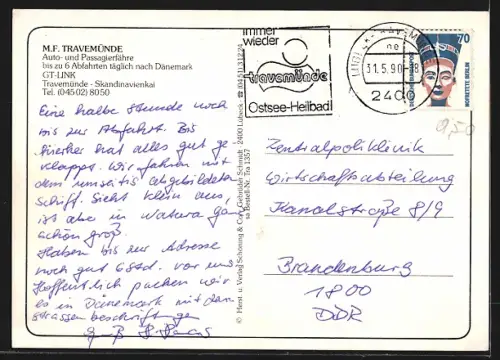 M.F. TRAVEMÜNDE
Auto- und Passagierfähre
bis zu 6 Abfahrten täglich nach Dänemark
GT-LINK
Travemünde - Skandinavienkai
Tel. (04502) 8050
Eine halbe Stunde noch
bis zur Abfahrt. Bis
hierher hat alles gut ge-
klappt. Wir fahren mit
dem umseitig abgebildeten
Schiff. Sieht klein aus,
ist aber in Natura ganz
schön groß.
Haben bis zur Adresse
noch gut 6 Std. vor uns
Hoffentlich packen wir
es in Dänemark mit den
Strassenbeschriftungen
Gruß
© Herst. u. Verlag Schöning & Co + Gebrüder Schmidt · 2400 Lübeck · ☎ (0451) 31224
Bestell-Nr. Tra 1357
immer
wieder
travemünde
Ostsee-Heilbad
31.5.90-18
ne
2400
70
NOFRETETE BERLIN
0,50
Zentralpoliklinik
Wirtschaftsabteilung
Kanalstraße 8/9
Brandenburg
1800
DDR